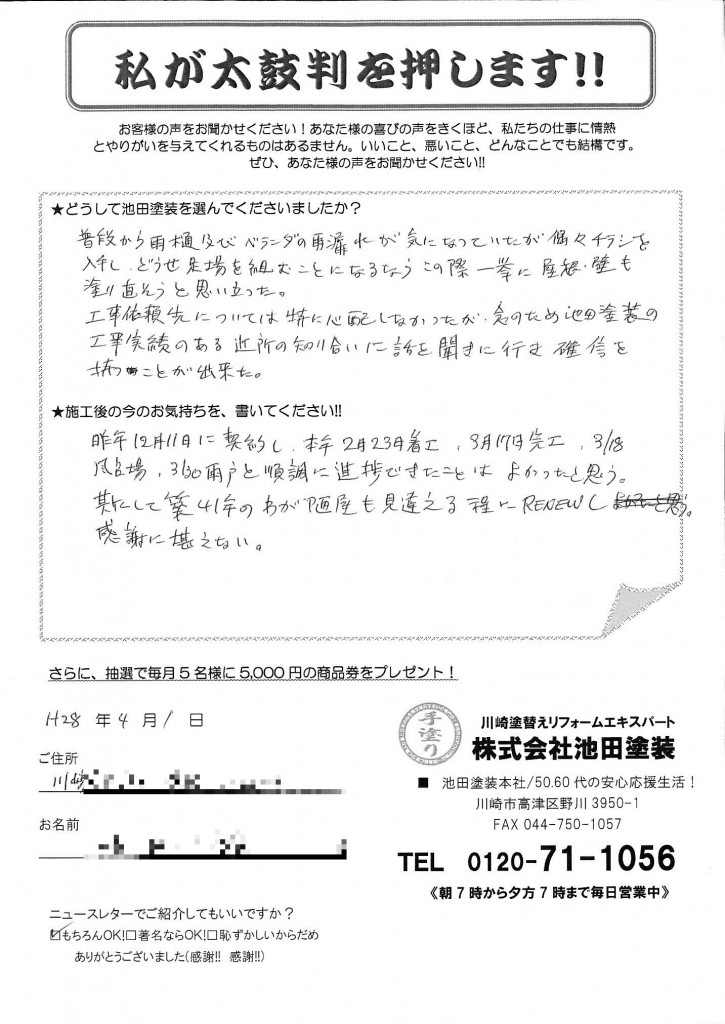 私が太鼓判を押します!!
お客様の声をお聞かせください！あなた様の喜びの声をきくほど、私たちの仕事に情熱
とやりがいを与えてくれるものはあるません。いいこと、悪いこと、どんなことでも結構です。
ぜひ、あなた様の声をお聞かせください!!
★どうして池田塗装を選んでくださいましたか？
普段から雨樋及びベランダの雨漏れが気になっていたが偶々チラシを
入手し、どうせ足場を組むことになるなら この際一挙に屋根・壁も
塗り直そうと思い立った。
工事依頼先については特に心配しなかったが、念のため池田塗装の
工事実績のある近所の知り合いに話を聞きに行き 確信を
持つことが出来た。
★施工後の今のお気持ちを、書いてください!!
昨年12月11日に契約し、本年2月23日着工、3月17日完工、3/18
足場、3/30雨戸と順調に進捗できたことは よかったと思う。
築41年のわが陋屋も見違える程にRENEWし
感謝に堪えない。
さらに、抽選で毎月５名様に5,000円の商品券をプレゼント！
H28 年 4 月 1 日
ご住所
川崎
お名前
手塗り
川崎塗替えリフォームエキスパート
株式会社池田塗装
■ 池田塗装本社/50.60代の安心応援生活！
川崎市高津区野川3950-1
FAX 044-750-1057
TEL 0120-71-1056
《朝7時から夕方7時まで毎日営業中》
ニュースレターでご紹介してもいいですか？
☑もちろんOK!□著名ならOK!□恥ずかしいからだめ
ありがとうございました(感謝!! 感謝!!)